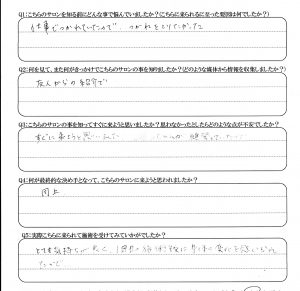 Q1:こちらのサロンを知る前にどんな事で悩んでいましたか？(こちらに来られるに至った要因は何でしたか？)
仕事でつかれていたので つかれをとりたかった
Q2:何を見て、また何がきっかけでこちらのサロンの事を知りましたか？(どのような媒体から情報を収集しましたか？)
友人からの紹介で
Q3:こちらのサロンの事を知ってすぐに来ようと思いましたか？思わなかったとしたらどのような点が不安でしたか？
すぐに来ようと思いました
Q4:何が最終的な決め手となって、こちらのサロンに来ようと思われましたか？
同上
Q5:実際こちらに来られて施術を受けてみていかがでしたか？
とても気持ちが良く、1回の施術後に